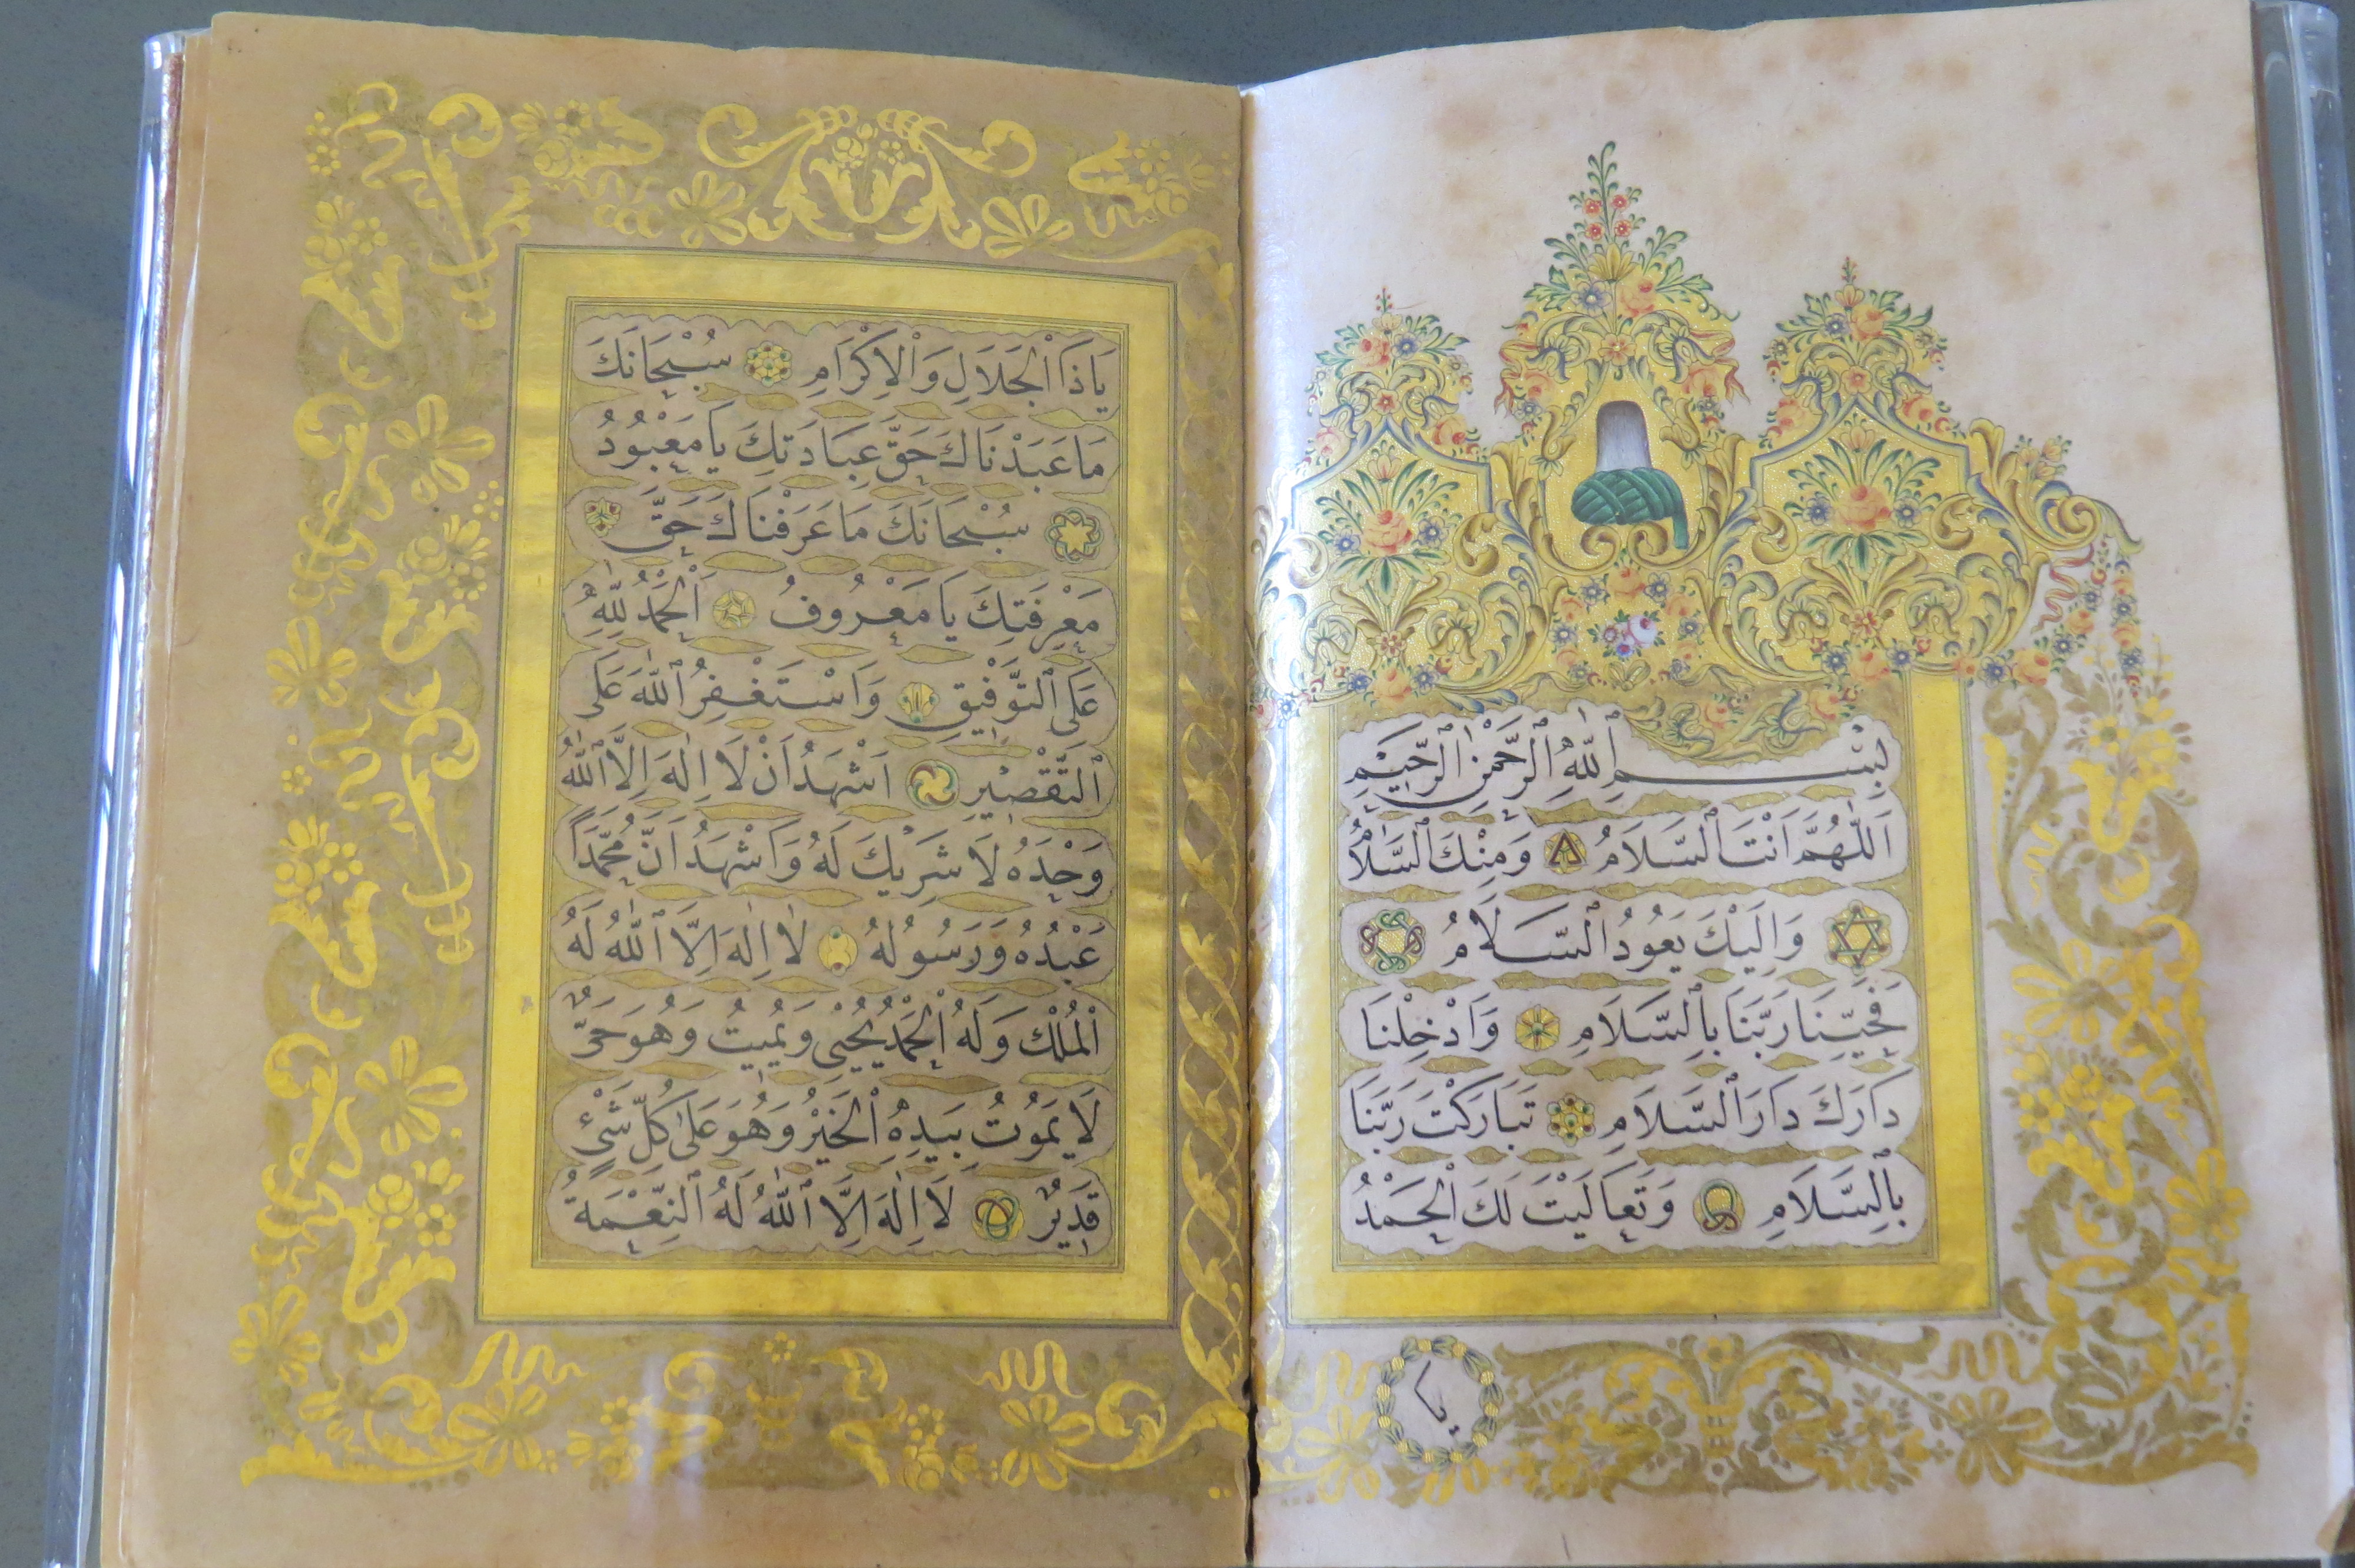 بِسْمِ اللّٰهِ الرَّحْمٰنِ الرَّحِيمِ
اَللّٰهُمَّ اَنْتَ السَّلَامُ وَمِنْكَ السَّلَامُ
وَاِلَيْكَ يَعُودُ السَّلَامُ
فَحَيِّنَا رَبَّنَا بِالسَّلَامِ وَادْخِلْنَا
دَارَكَ دَارَ السَّلَامِ تَبَارَكْتَ رَبَّنَا
بِالسَّلَامِ وَتَعَالَيْتَ لَكَ الْحَمْدُ
يا
يَا ذَا الْجَلَالِ وَالْاِكْرَامِ سُبْحَانَكَ
مَا عَبَدْنَاكَ حَقَّ عِبَادَتِكَ يَا مَعْبُودُ
سُبْحَانَكَ مَا عَرَفْنَاكَ حَقَّ
مَعْرِفَتِكَ يَا مَعْرُوفُ اَلْحَمْدُ لِلّٰهِ
عَلَى التَّوْفِيقِ وَاَسْتَغْفِرُ اللّٰهَ عَلَى
التَّقْصِيْرِ اَشْهَدُ اَنْ لَا اِلٰهَ اِلَّا اللّٰهُ
وَحْدَهُ لَا شَرِيكَ لَهُ وَاَشْهَدُ اَنَّ مُحَمَّدًا
عَبْدُهُ وَرَسُولُهُ لَا اِلٰهَ اِلَّا اللّٰهُ لَهُ
الْمُلْكُ وَلَهُ الْحَمْدُ يُحْيِي وَيُمِيتُ وَهُوَ حَيٌّ
لَا يَمُوتُ بِيَدِهِ الْخَيْرُ وَهُوَ عَلٰى كُلِّ شَيْءٍ
قَدِيرٌ لَا اِلٰهَ اِلَّا اللّٰهُ لَهُ النِّعْمَةُ